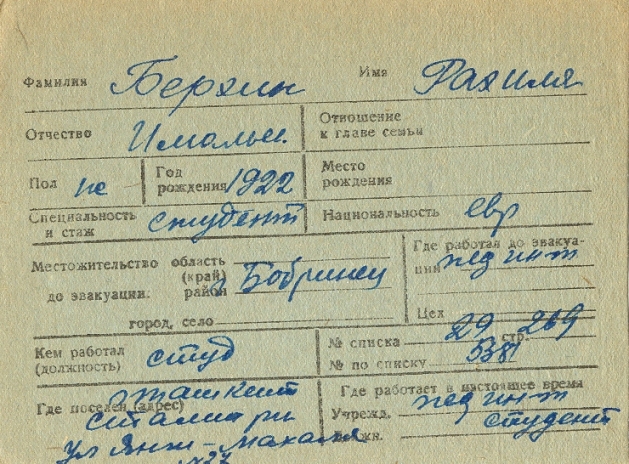 Фамилия Берхин Имя Рахиля
Отчество Имольи. Отношение к главе семьи
Пол же Год рождения 1922 Место рождения
Специальность и стаж студент Национальность евр
Местожительство область (край) район до эвакуации. г Бобринец
город, село
Где работал до эвакуации пед ин-т
Цех
Кем работал (должность) студ
№ списка 29 стр. 269
№ по списку 5381
Где поселен (адрес) г Ташкент
Сталин рн
ул Янги-Махаля
№27
Где работает в настоящее время
Учрежд. пед ин-т
Должн. студент